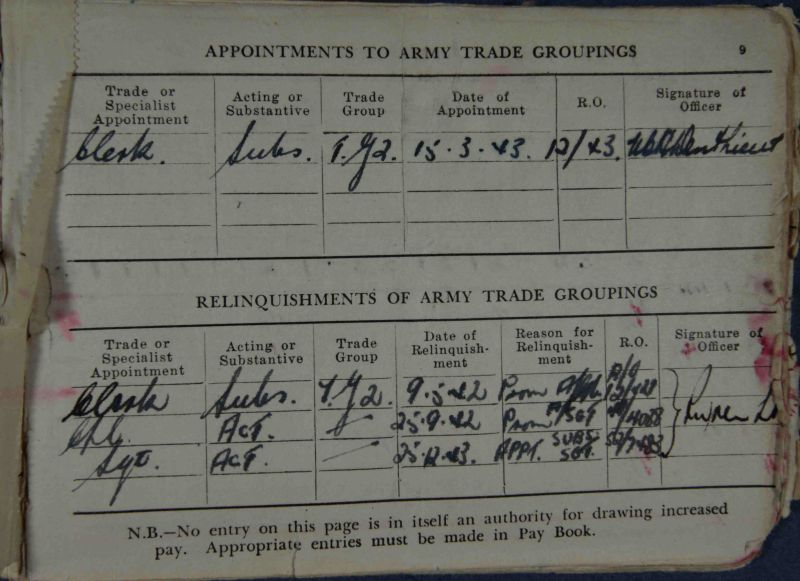 APPOINTMENTS TO ARMY TRADE GROUPINGS 9
Trade or Specialist Appointment Acting or Substantive Trade Group Date of Appointment R.O. Signature of Officer
Clerk. Subs. T.G2. 15.3.43. 12/43.
RELINQUISHMENTS OF ARMY TRADE GROUPINGS
Trade or Specialist Appointment Acting or Substantive Trade Group Date of Relinquish-ment Reason for Relinquish-ment R.O. Signature of Officer
Clerk Subs. T.G2. 9.5.42 Prom
Cpl. ACT. 25.9.42 Prom SGT /4088
Sgt. ACT. 25.12.43. APPT. SUBS SGT.
N.B.—No entry on this page is in itself an authority for drawing increased
pay. Appropriate entries must be made in Pay Book.